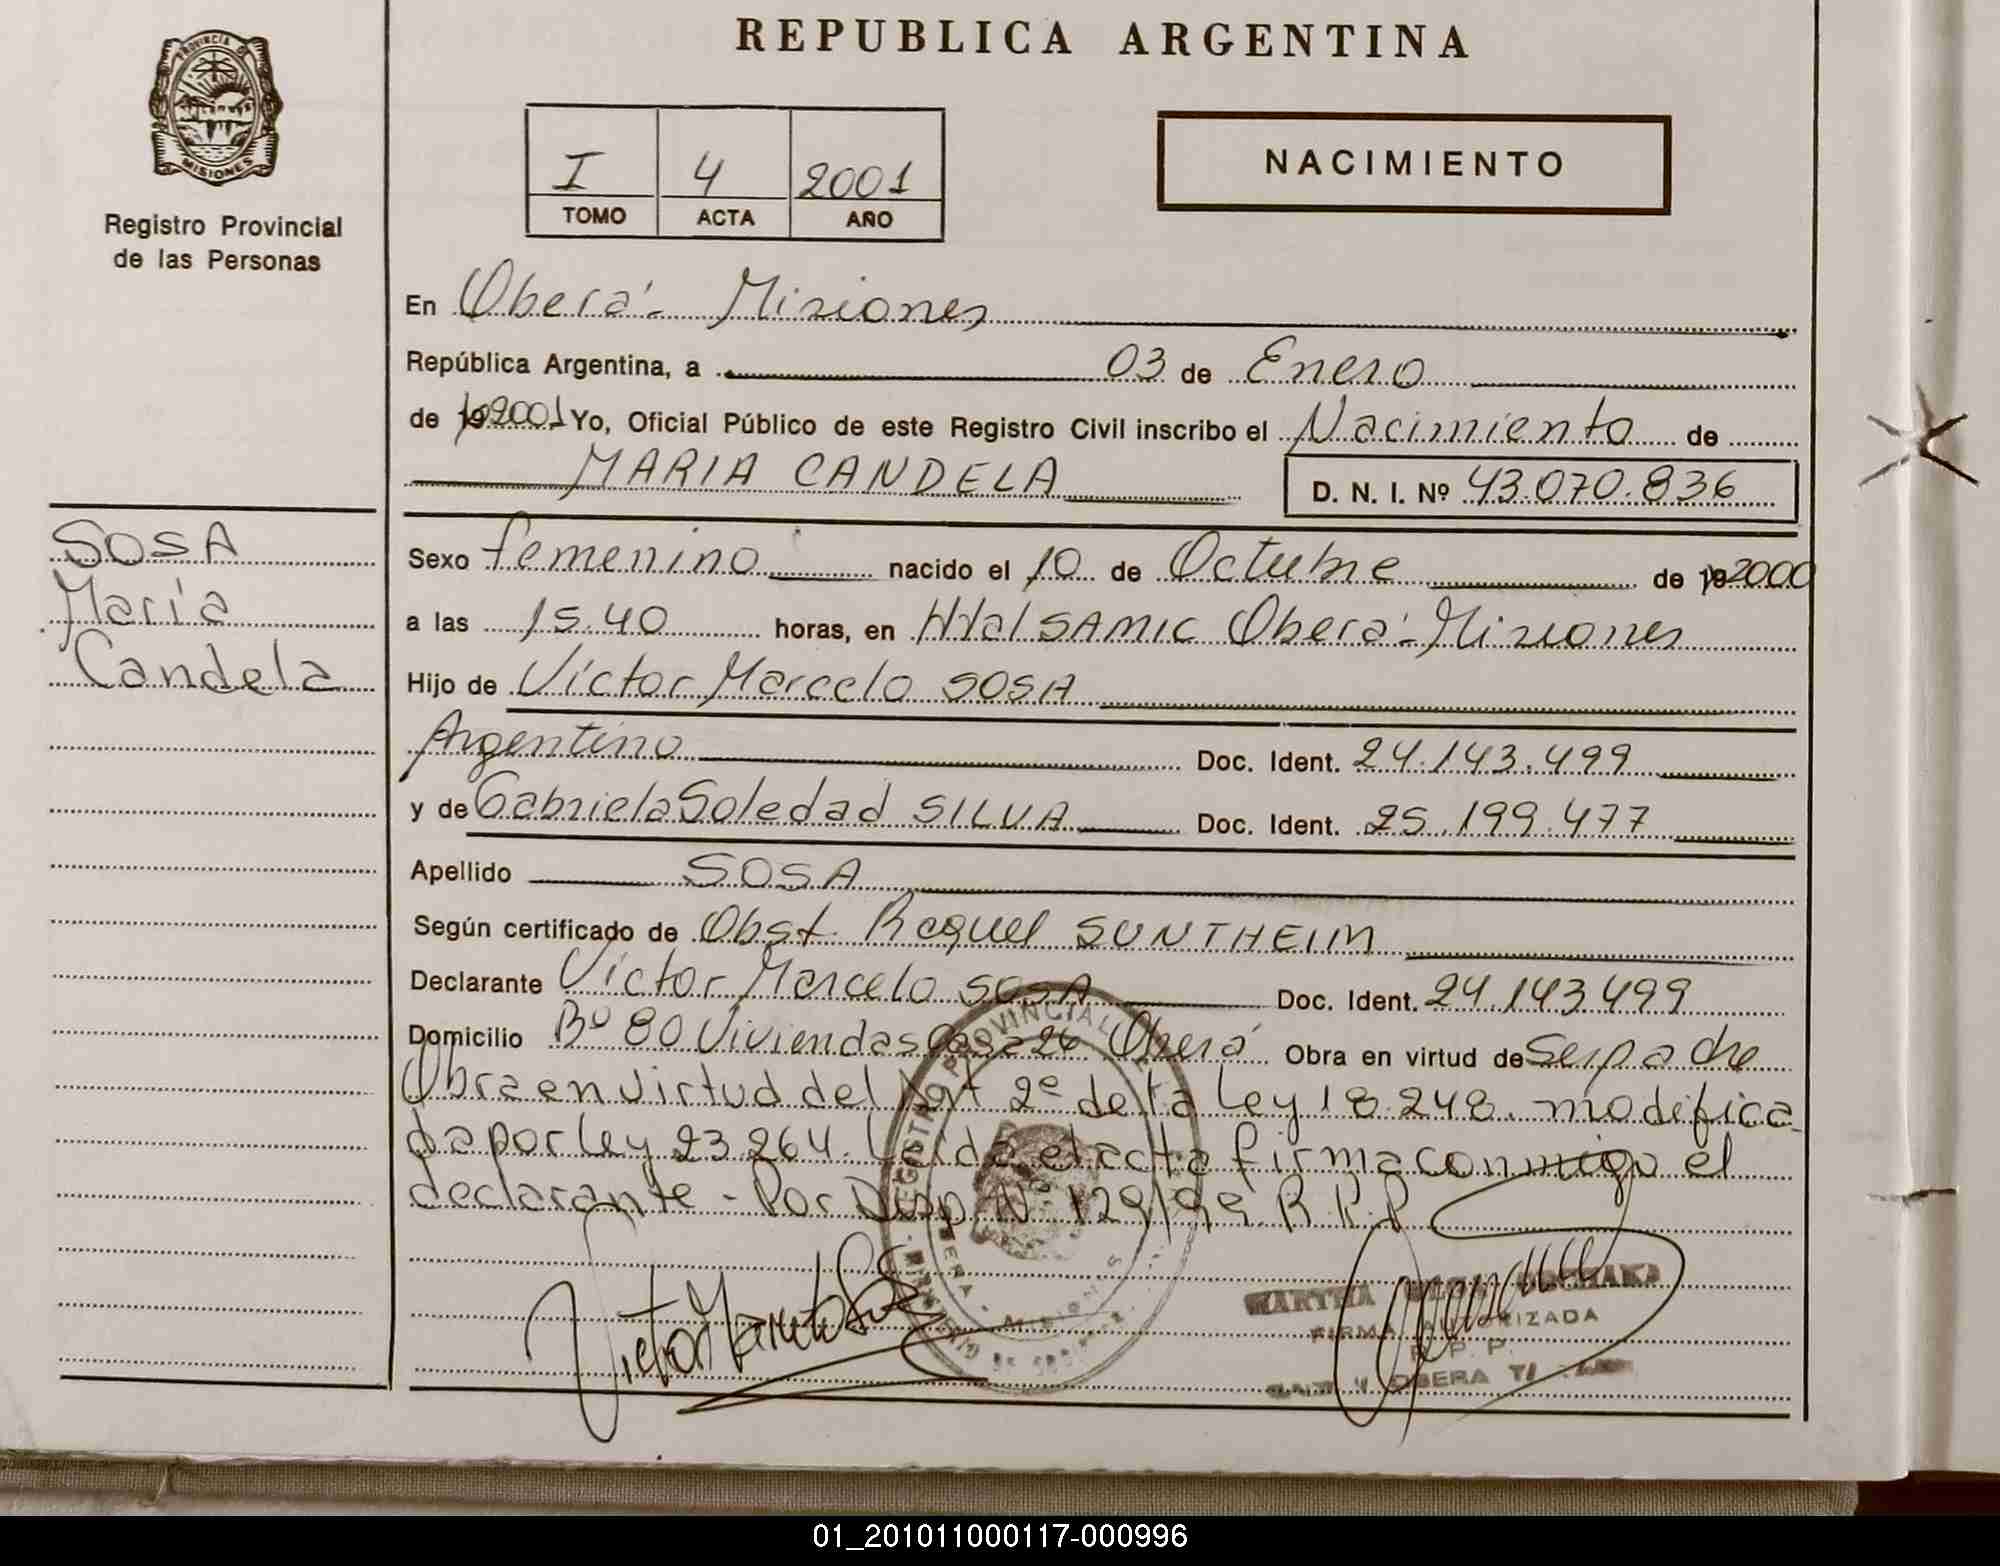 PROVINCIA D
MISIONES
Registro Provincial
de las Personas
SOSA
María
Candela
REPUBLICA ARGENTINA
I 4 2001
TOMO ACTA AÑO
NACIMIENTO
En Oberá - Misiones
República Argentina, a 03 de Enero
de 19 2001 Yo, Oficial Público de este Registro Civil inscribo el Nacimiento de
MARIA CANDELA D. N. I. Nº 43.070.836
Sexo femenino nacido el 10 de Octubre de 19 2000
a las 15.40 horas, en SAMIC Oberá - Misiones
Hijo de Víctor Marcelo SOSA
Argentino Doc. Ident. 24.143.499
y de Gabriela Soledad SILVA Doc. Ident. 25.199.477
Apellido SOSA
Según certificado de Obst. Raquel SUNTHEIM
Declarante Víctor Marcelo SOSA Doc. Ident. 24.143.499
Domicilio Bº 80 Viviendas Casa 26 Oberá Obra en virtud de Ser padre
Obra en virtud del Art 2º de la Ley 18.248. modifica_
da por ley 23.264. Leída el acta firma conmigo el
declarante - Por Disp. Nº 129/99 R.P.P
REGISTRO PROVINCIAL
Victor Marcelo
MARTHA
FIRMA AUTORIZADA
R. P. P.
OBERA
01_201011000117-000996